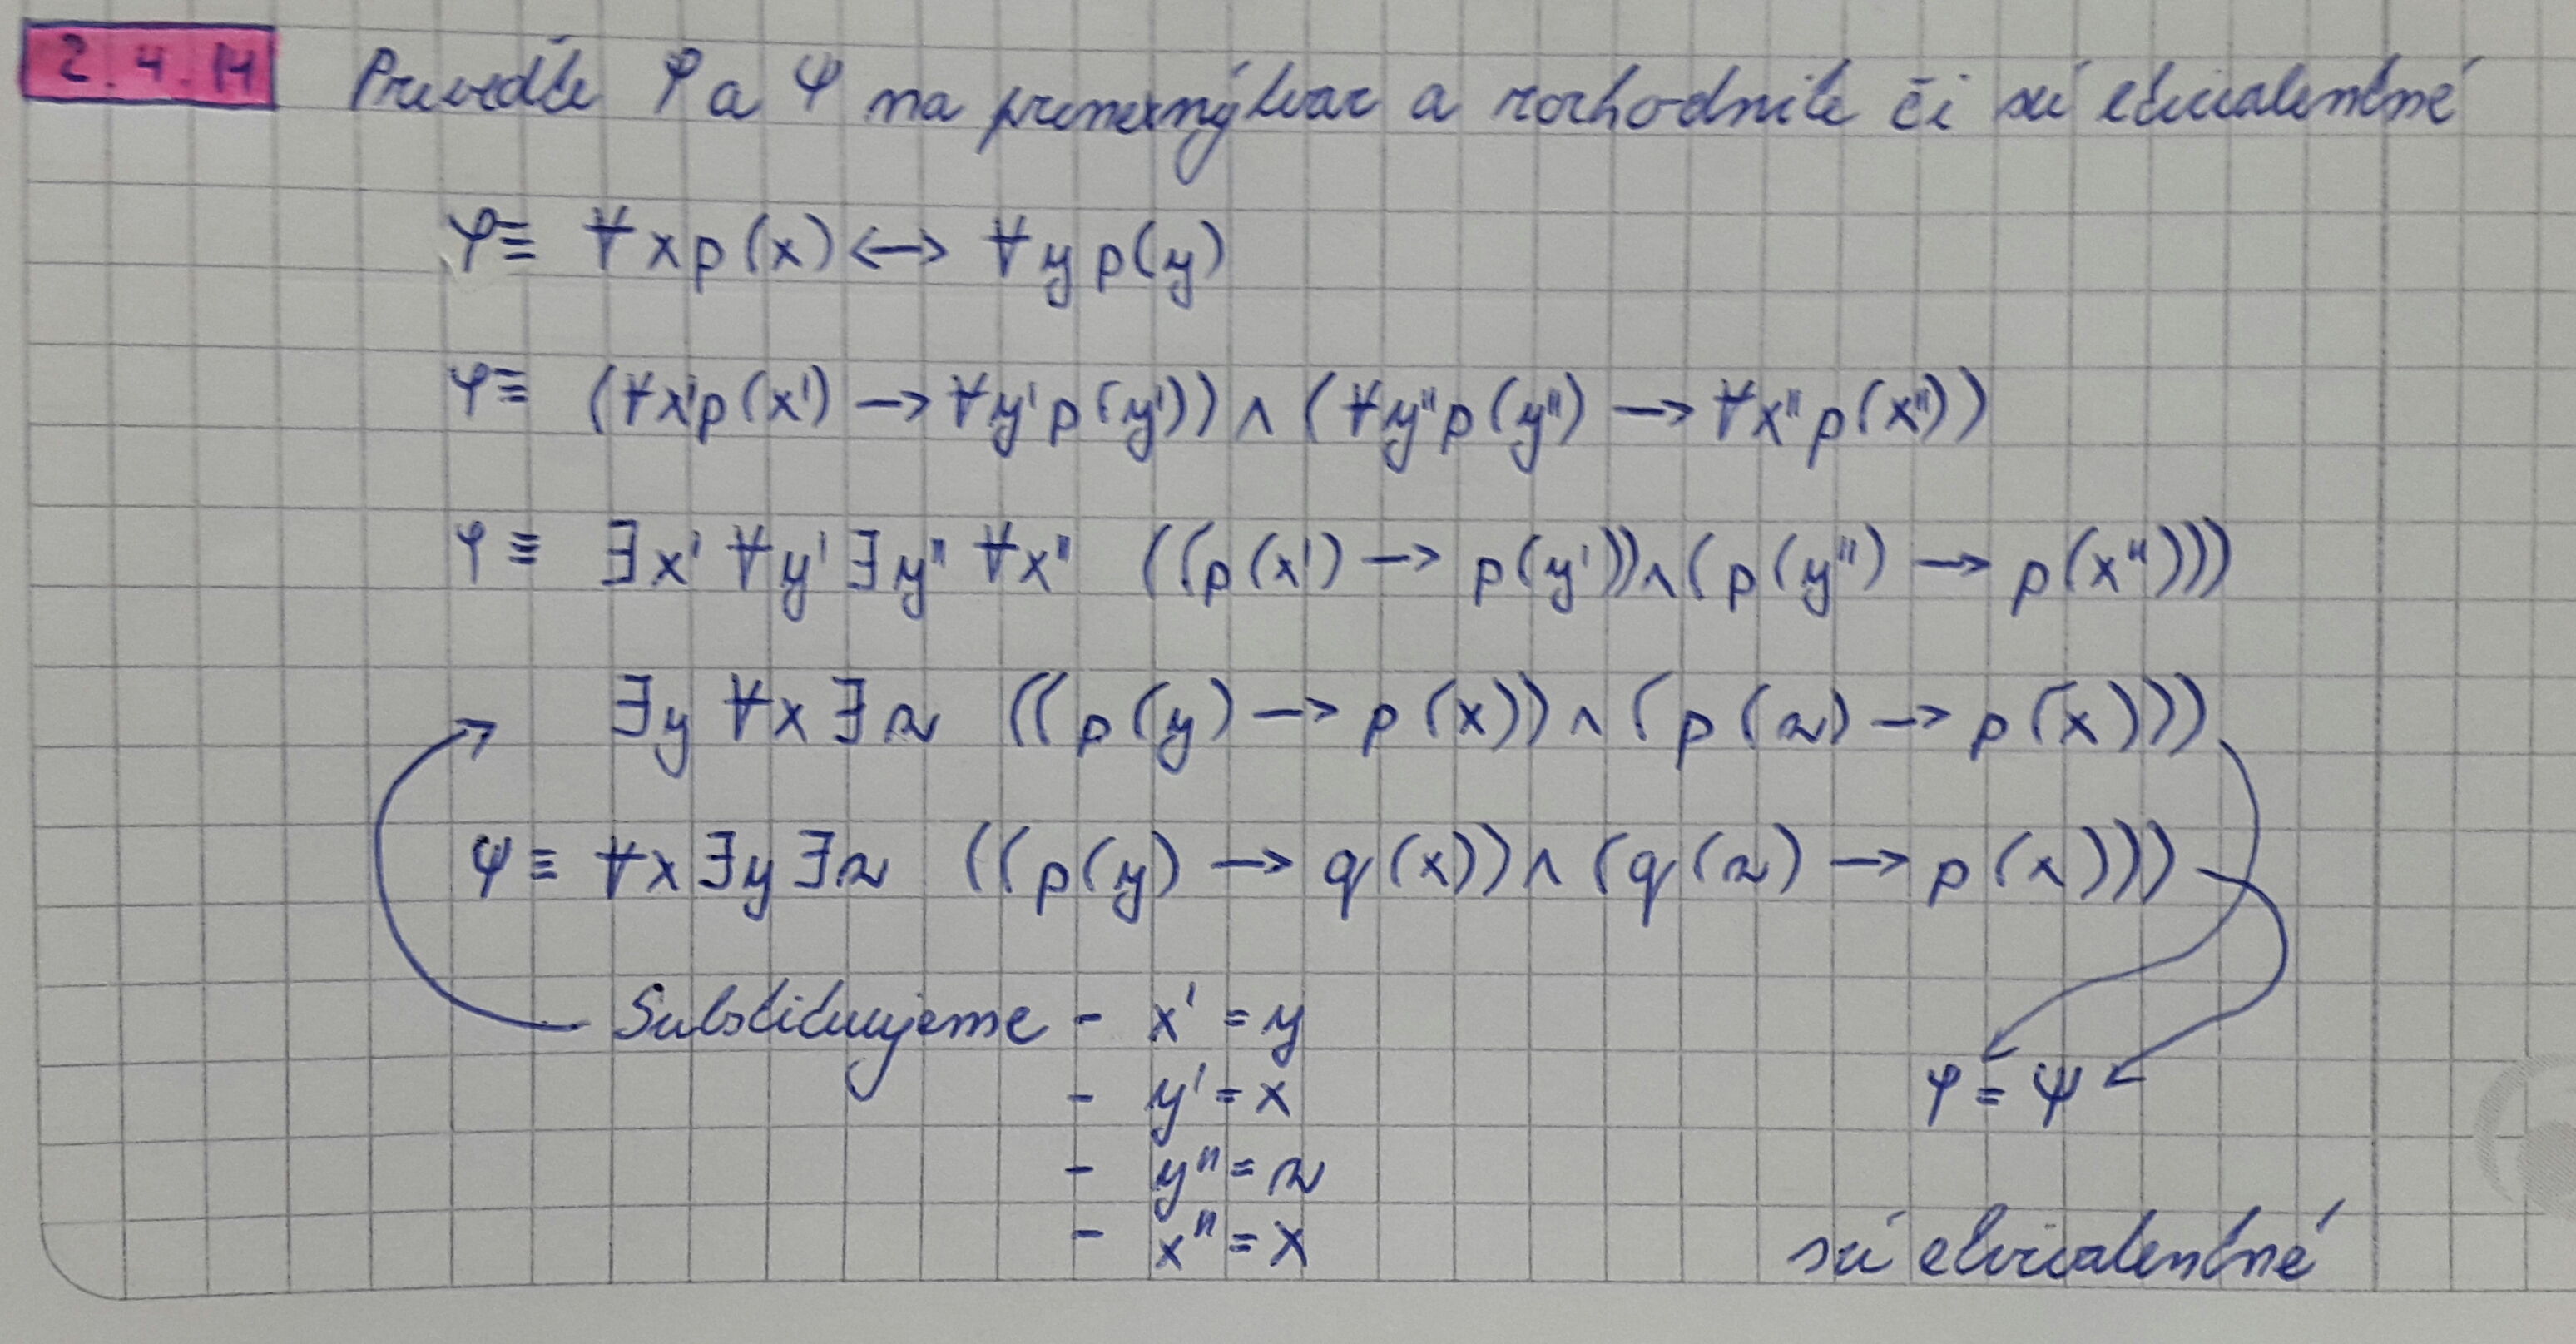 2.4.14 Preveďte φ a ψ na prenexný tvar a rozhodnite či sú ekvivalentné
φ≡ ∀xp(x)<->∀yp(y)
φ≡ (∀x'p(x') -> ∀y'p(y'))∧(∀y"p(y") -> ∀x"p(x"))
φ≡ ∃x'∀y'∃y"∀x" ((p(x') -> p(y'))∧(p(y") -> p(x")))
∃y∀x∃z ((p(y) -> p(x))∧(p(z) -> p(x)))
ψ≡ ∀x∃y∃z ((p(y) -> q(x))∧(q(z) -> p(x)))
Substitujeme - x' = y
- y' = x
φ = ψ
- y" = z
- x" = x
sú ekvivalentné